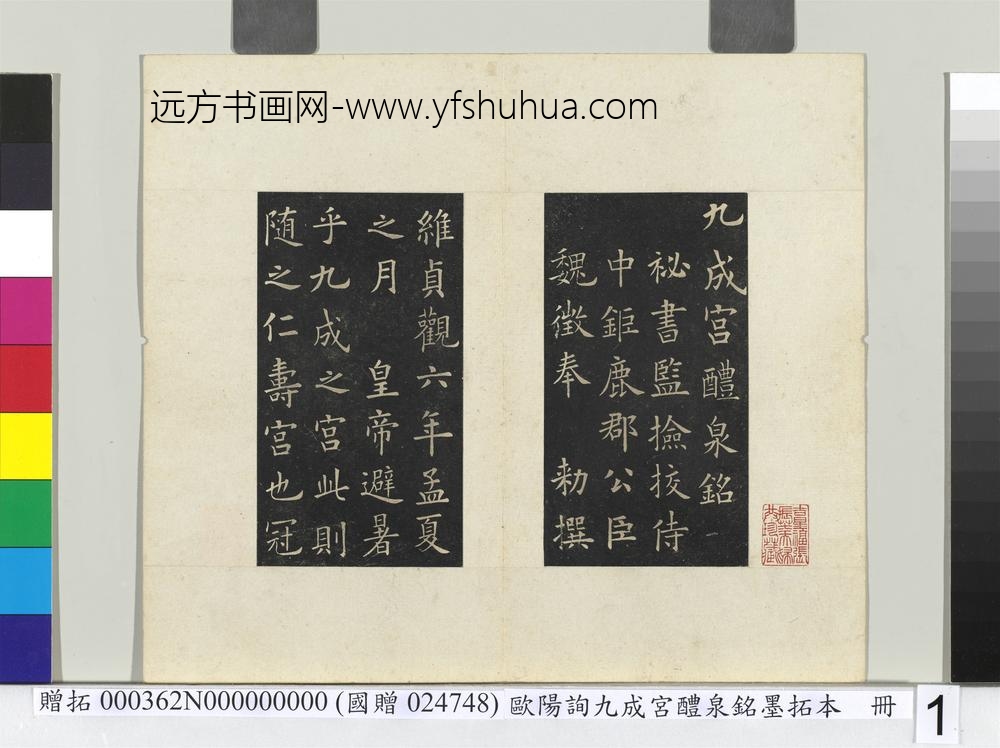 远方书画网-www.yfshuhua.com
九成宫醴泉銘
祕書監撿挍侍
中鉅鹿郡公臣
魏徵奉 勑撰
維貞觀六年孟夏
之月 皇帝避暑
乎九成之宫此則
随之仁壽宫也冠
贈拓 000362N000000000 (國贈 024748) 歐陽詢九成宮醴泉銘墨拓本 冊
1